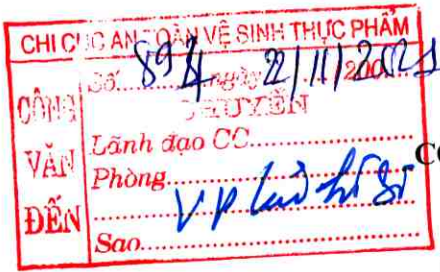 CHI CỤC AN TOÀN VỆ SINH THỰC PHẨM
CÔNG VĂN ĐẾN
Số 894 ngày 2/11/2021
CHUYỂN
Lãnh đạo CC
Phòng
VP lưu hồ sơ
Sao